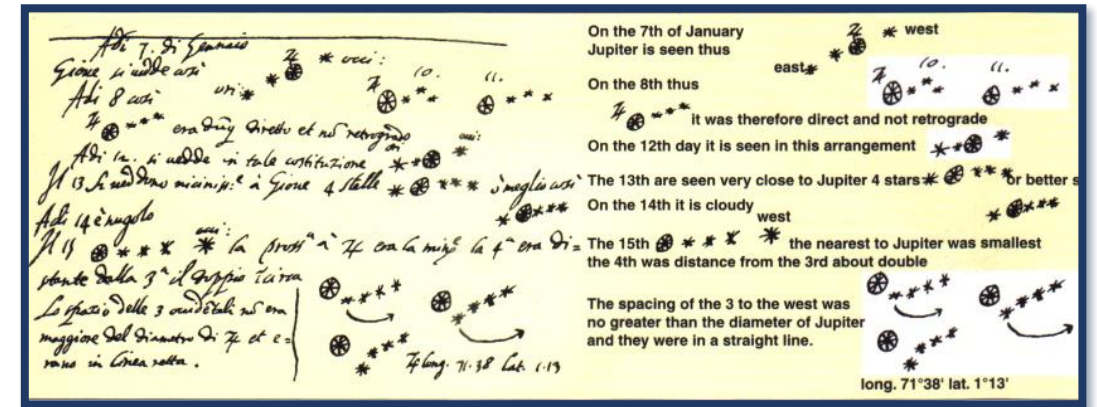 Adi 7. di Gennaio
Gioue si uedde così
occi:
Adi 8 così
ori:
10. 11.
era diretto et nõ retrogrado
Adi 12. si uedde in tale costituzione
ori occi:
Il 13 si ueddono à Gioue 4 stelle ò meglio così
Adi 14 è nugolo
Il 15 occi: la prossᵃ à ♃ era la minᵉ la 4ᵃ era di=
stante dalla 3ᵃ il doppio circa
Lo spazio delle 3 nõ era
maggiore del diametro di ♃ et e=
rano in linea retta.
♃ long. 71.38 Lat. 1.13
On the 7th of January
♃ west
Jupiter is seen thus
east
On the 8th thus
♃ 10. 11.
♃ it was therefore direct and not retrograde
On the 12th day it is seen in this arrangement
The 13th are seen very close to Jupiter 4 stars or better s
On the 14th it is cloudy
west
The 15th the nearest to Jupiter was smallest
the 4th was distance from the 3rd about double
The spacing of the 3 to the west was
no greater than the diameter of Jupiter
and they were in a straight line.
long. 71°38' lat. 1°13'